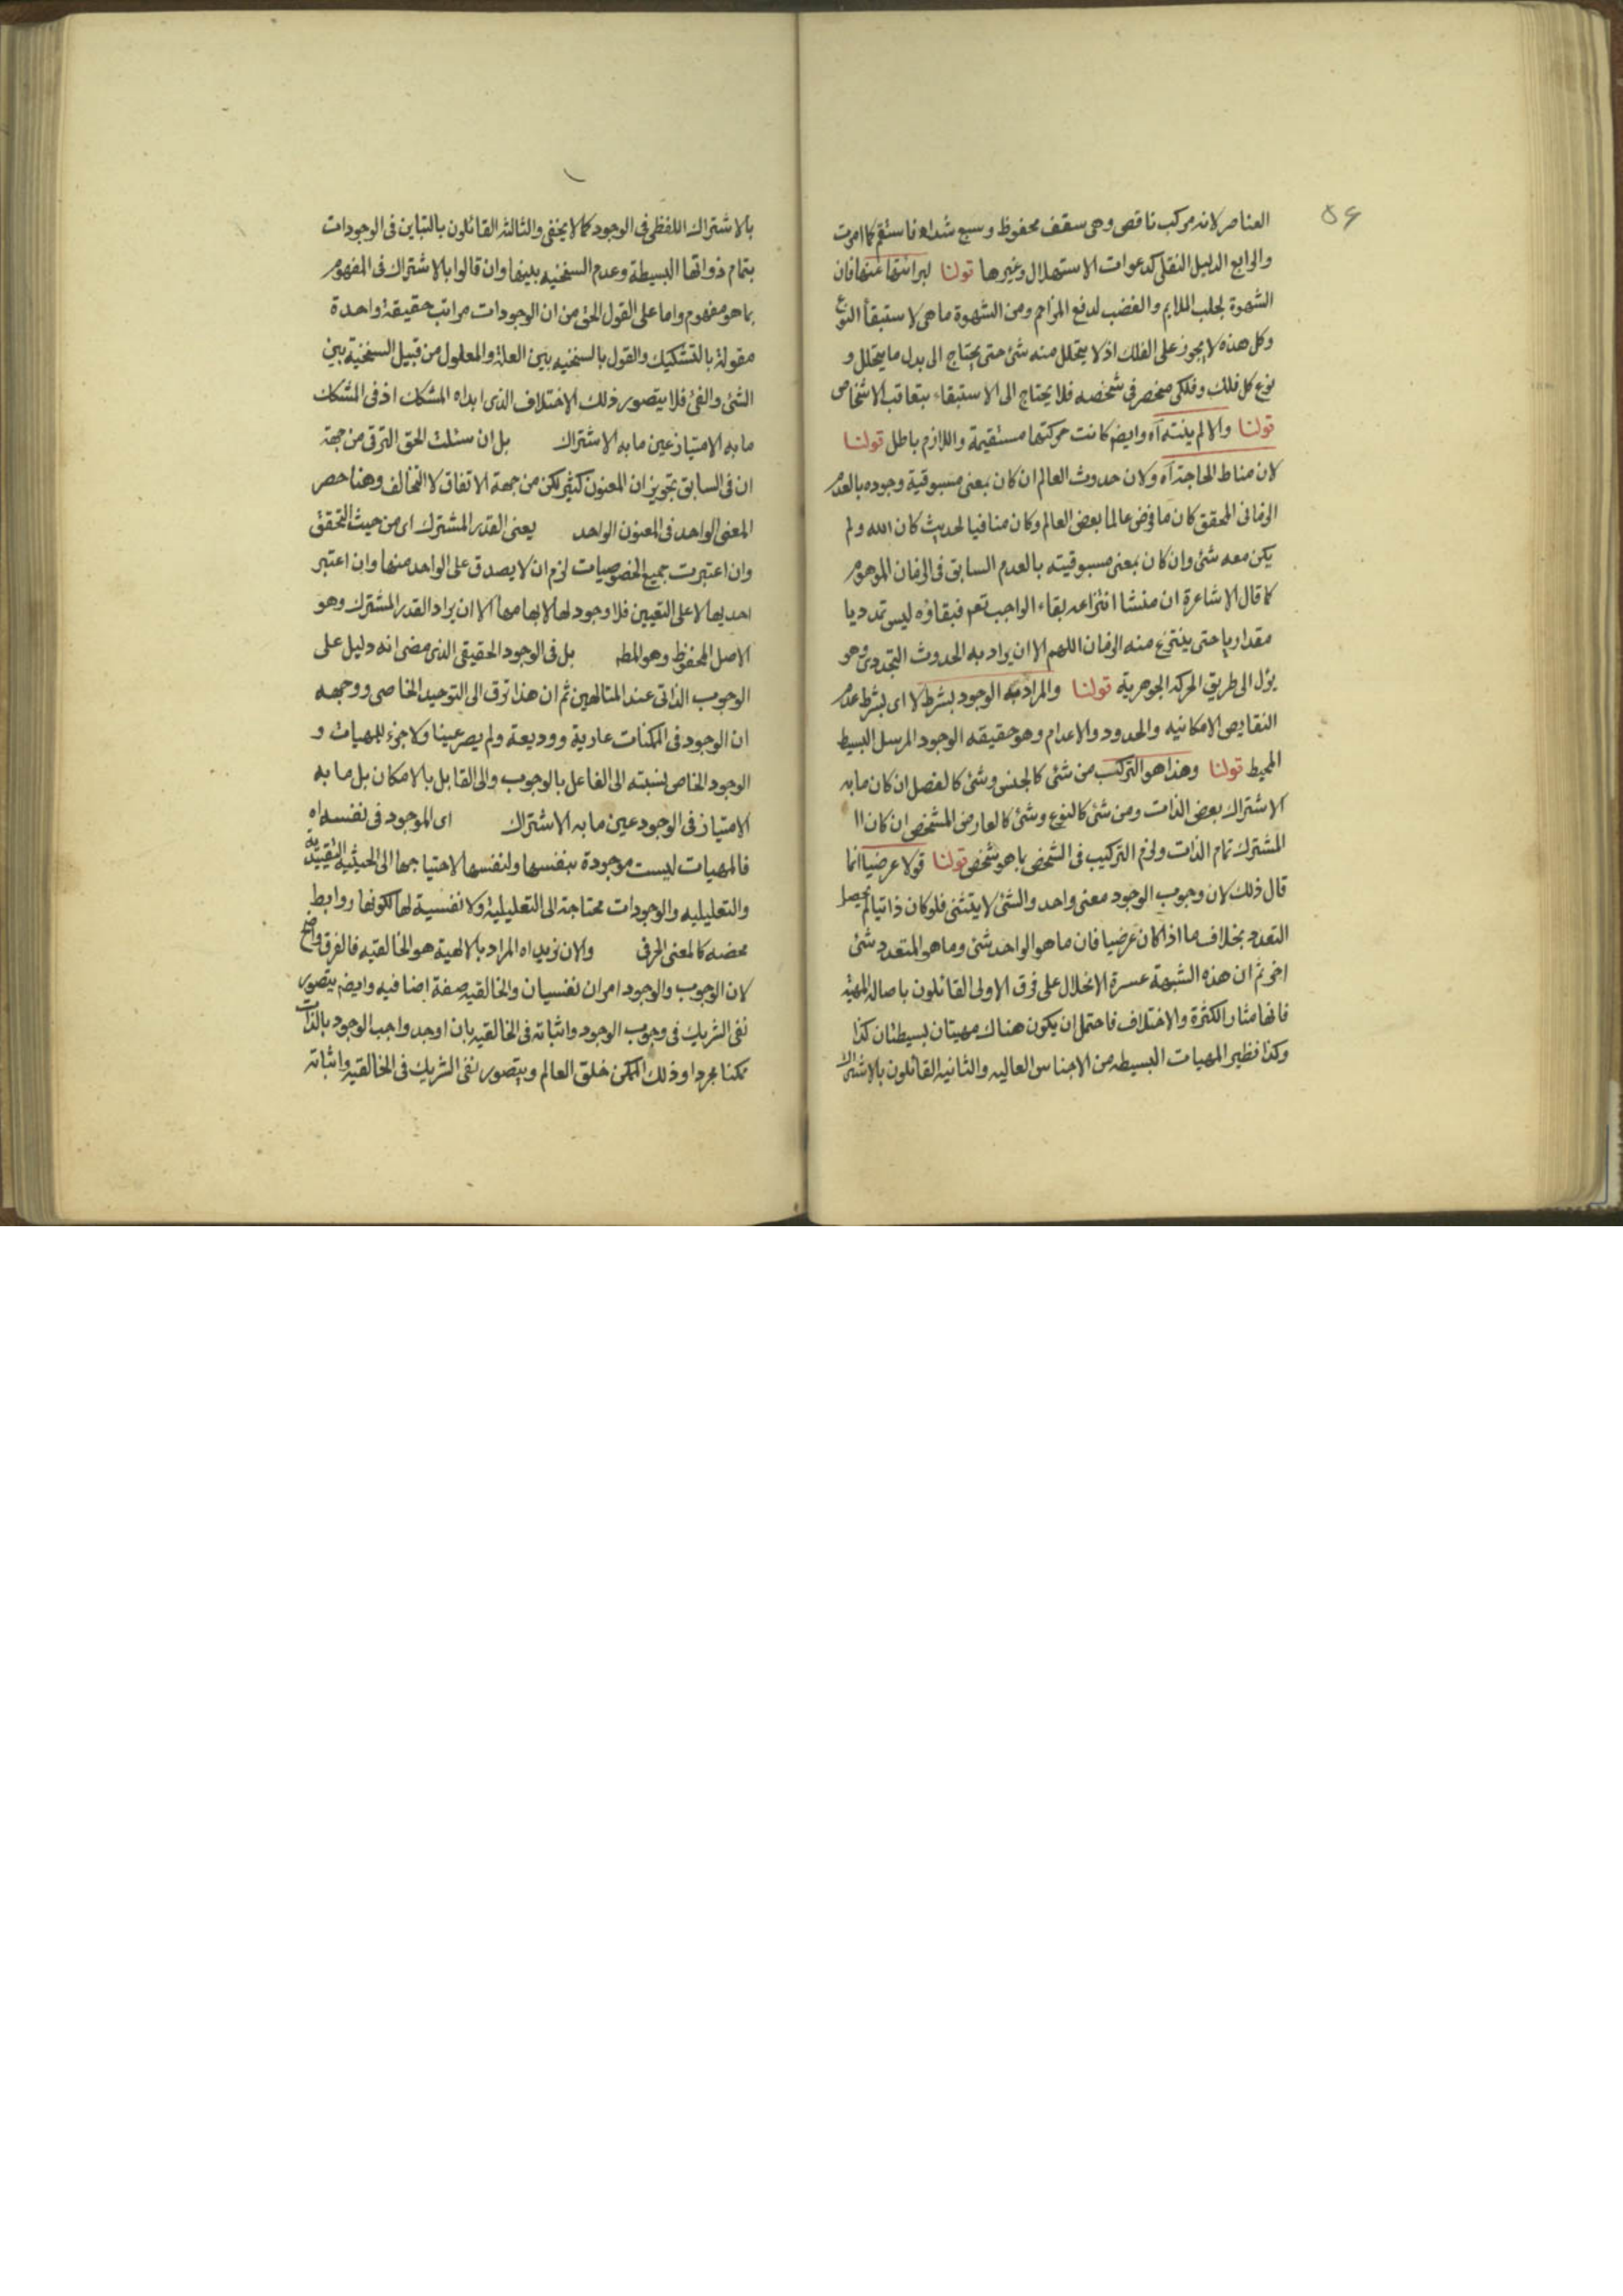 ۵۶
العناصر لانه مركب ناقص وهى سقف محفوظ وسبع شداد فاستقم كما امرت
والرابع الدليل النقلى كدعوات الاستهلال وغيرها قولنا لبرائتها عنها فان
الشهوة لجلب الملايم والغضب لدفع المزاحم ومن الشهوة ما هى لاستبقأ النوع
وكل هذه لا يجوز على الفلك اذ لا يتحلل منه شئ حتى يحتاج الى بدل ما يتحلل و
نوع كل فلك وفلكى منحصر فى شخصه فلا يحتاج الى الاستبقاء بتعاقب الاشخاص
قولنا والا لم ينته اه وايضم كانت حركتها مستقيمة واللازم باطل قولنا
لان مناط الحاجة اه ولان حدوث العالم ان كان بمعنى مسبوقية وجوده بالعدم
الزمانى المحقق كان ما فرض عالما بعض العالم وكان منافيا لحديث كان الله ولم
يكن معه شئ وان كان بمعنى مسبوقيته بالعدم السابق فى الزمان الموهوم
كما قال الاشاعرة ان منشا انتزاعه بقاء الواجب تعم فبقاؤه ليس تمدديا
مقداريا حتى ينتزع منه الزمان اللهم الا ان يراد به الحدوث التجددى وهو
يؤل الى طريق الحركة الجوهرية قولنا والمراد به الوجود بشرط لا اى بشرط عدم
النقايص الامكانيه والحدود والاعدام وهو حقيقه الوجود المرسل البسيط
المحيط قولنا وهذا هو التركب من شئ كالجنس وشئ كالفصل ان كان ما به
الاشتراك بعض الذات ومن شئ كالنوع وشئ كالعارض المشخص ان كان ا
المشترك تمام الذات ولزم التركيب فى الشخص بما هو شخص قولنا قولا عرضيا انما
قال ذلك لان وجوب الوجود معنى واحد والشئ لا يتثنى فلو كان ذاتيا لم يحصل
التعدد بخلاف ما اذا كان عرضيا فان ما هو الواحد شئ وما هو المتعدد شئ
اخر ثم ان هذه الشبهة عسرة الانحلال على فرق الاولى القائلون باصالة المهية
فانها مثار الكثرة والاختلاف فاحتمل ان يكون هناك مهيتان بسيطتان كذا
وكذا نظير المهيات البسيطه من الاجناس العاليه والثانيه القائلون بالاشتراك
بالاشتراك اللفظى فى الوجود كما لا يخفى والثالثه القائلون بالتباين فى الوجودات
بتمام ذواتها البسيطة وعدم السنخيه بينها وان قالوا بالاشتراك فى المفهوم
بما هو مفهوم واما على القول الحق من ان الوجودات مراتب حقيقة واحدة
مقولة بالتشكيك والقول بالسنخيه بين العلة والمعلول من قبيل السنخية بين
الشئ والفئ فلا يتصور ذلك الاختلاف الذى ابداه المشكك اذ فى المشكك
ما به الامتياز عين ما به الاشتراك بل ان سئلت الحق الترقى من جهة
ان فى السابق تجويز ان المعنون كثير لكن من جهة الاتفاق لا التخالف وهنا حصر
المعنى الواحد فى المعنون الواحد يعنى القدر المشترك اى من حيث التحقق
وان اعتبرت جميع الخصوصيات لزم ان لا يصدق على الواحد منها وان اعتبر
احديها لا على التعيين فلا وجود لها لابهامها الا ان يراد القدر المشترك وهو
الاصل المحفوظ وهو المط بل فى الوجود الحقيقى الذى مضى انه دليل على
الوجوب الذاتى عند المتالهين ثم ان هذا ترق الى التوحيد الخاصى ووجهه
ان الوجود فى الممكنات عارية ووديعة ولم يصر عينا ولا جزء للمهيات و
الوجود الخاص نسبته الى الفاعل بالوجوب والى القابل بالامكان بل ما به
الامتياز فى الوجود عين ما به الاشتراك اى الموجود فى نفسه اه
فالمهيات ليست موجودة بنفسها ولنفسها لاحتياجها الى الحيثية التقييدية
والتعليليه والوجودات محتاجة الى التعليلية ولا نفسية لها لكونها روابط
محضه كالمعنى الحرفى والان نزيد اه المراد بالالهية هو الخالقيه فالفرق واضح
لان الوجوب والوجود امران نفسيان والخالقيه صفة اضافيه وايضم يتصور
نفى الشريك فى وجوب الوجود واثباته فى الخالقيه بان اوجد واجب الوجود بالذات
ممكنا مجردا وذلك الممكن خلق العالم ويتصور نفى الشريك فى الخالقيه واثباته